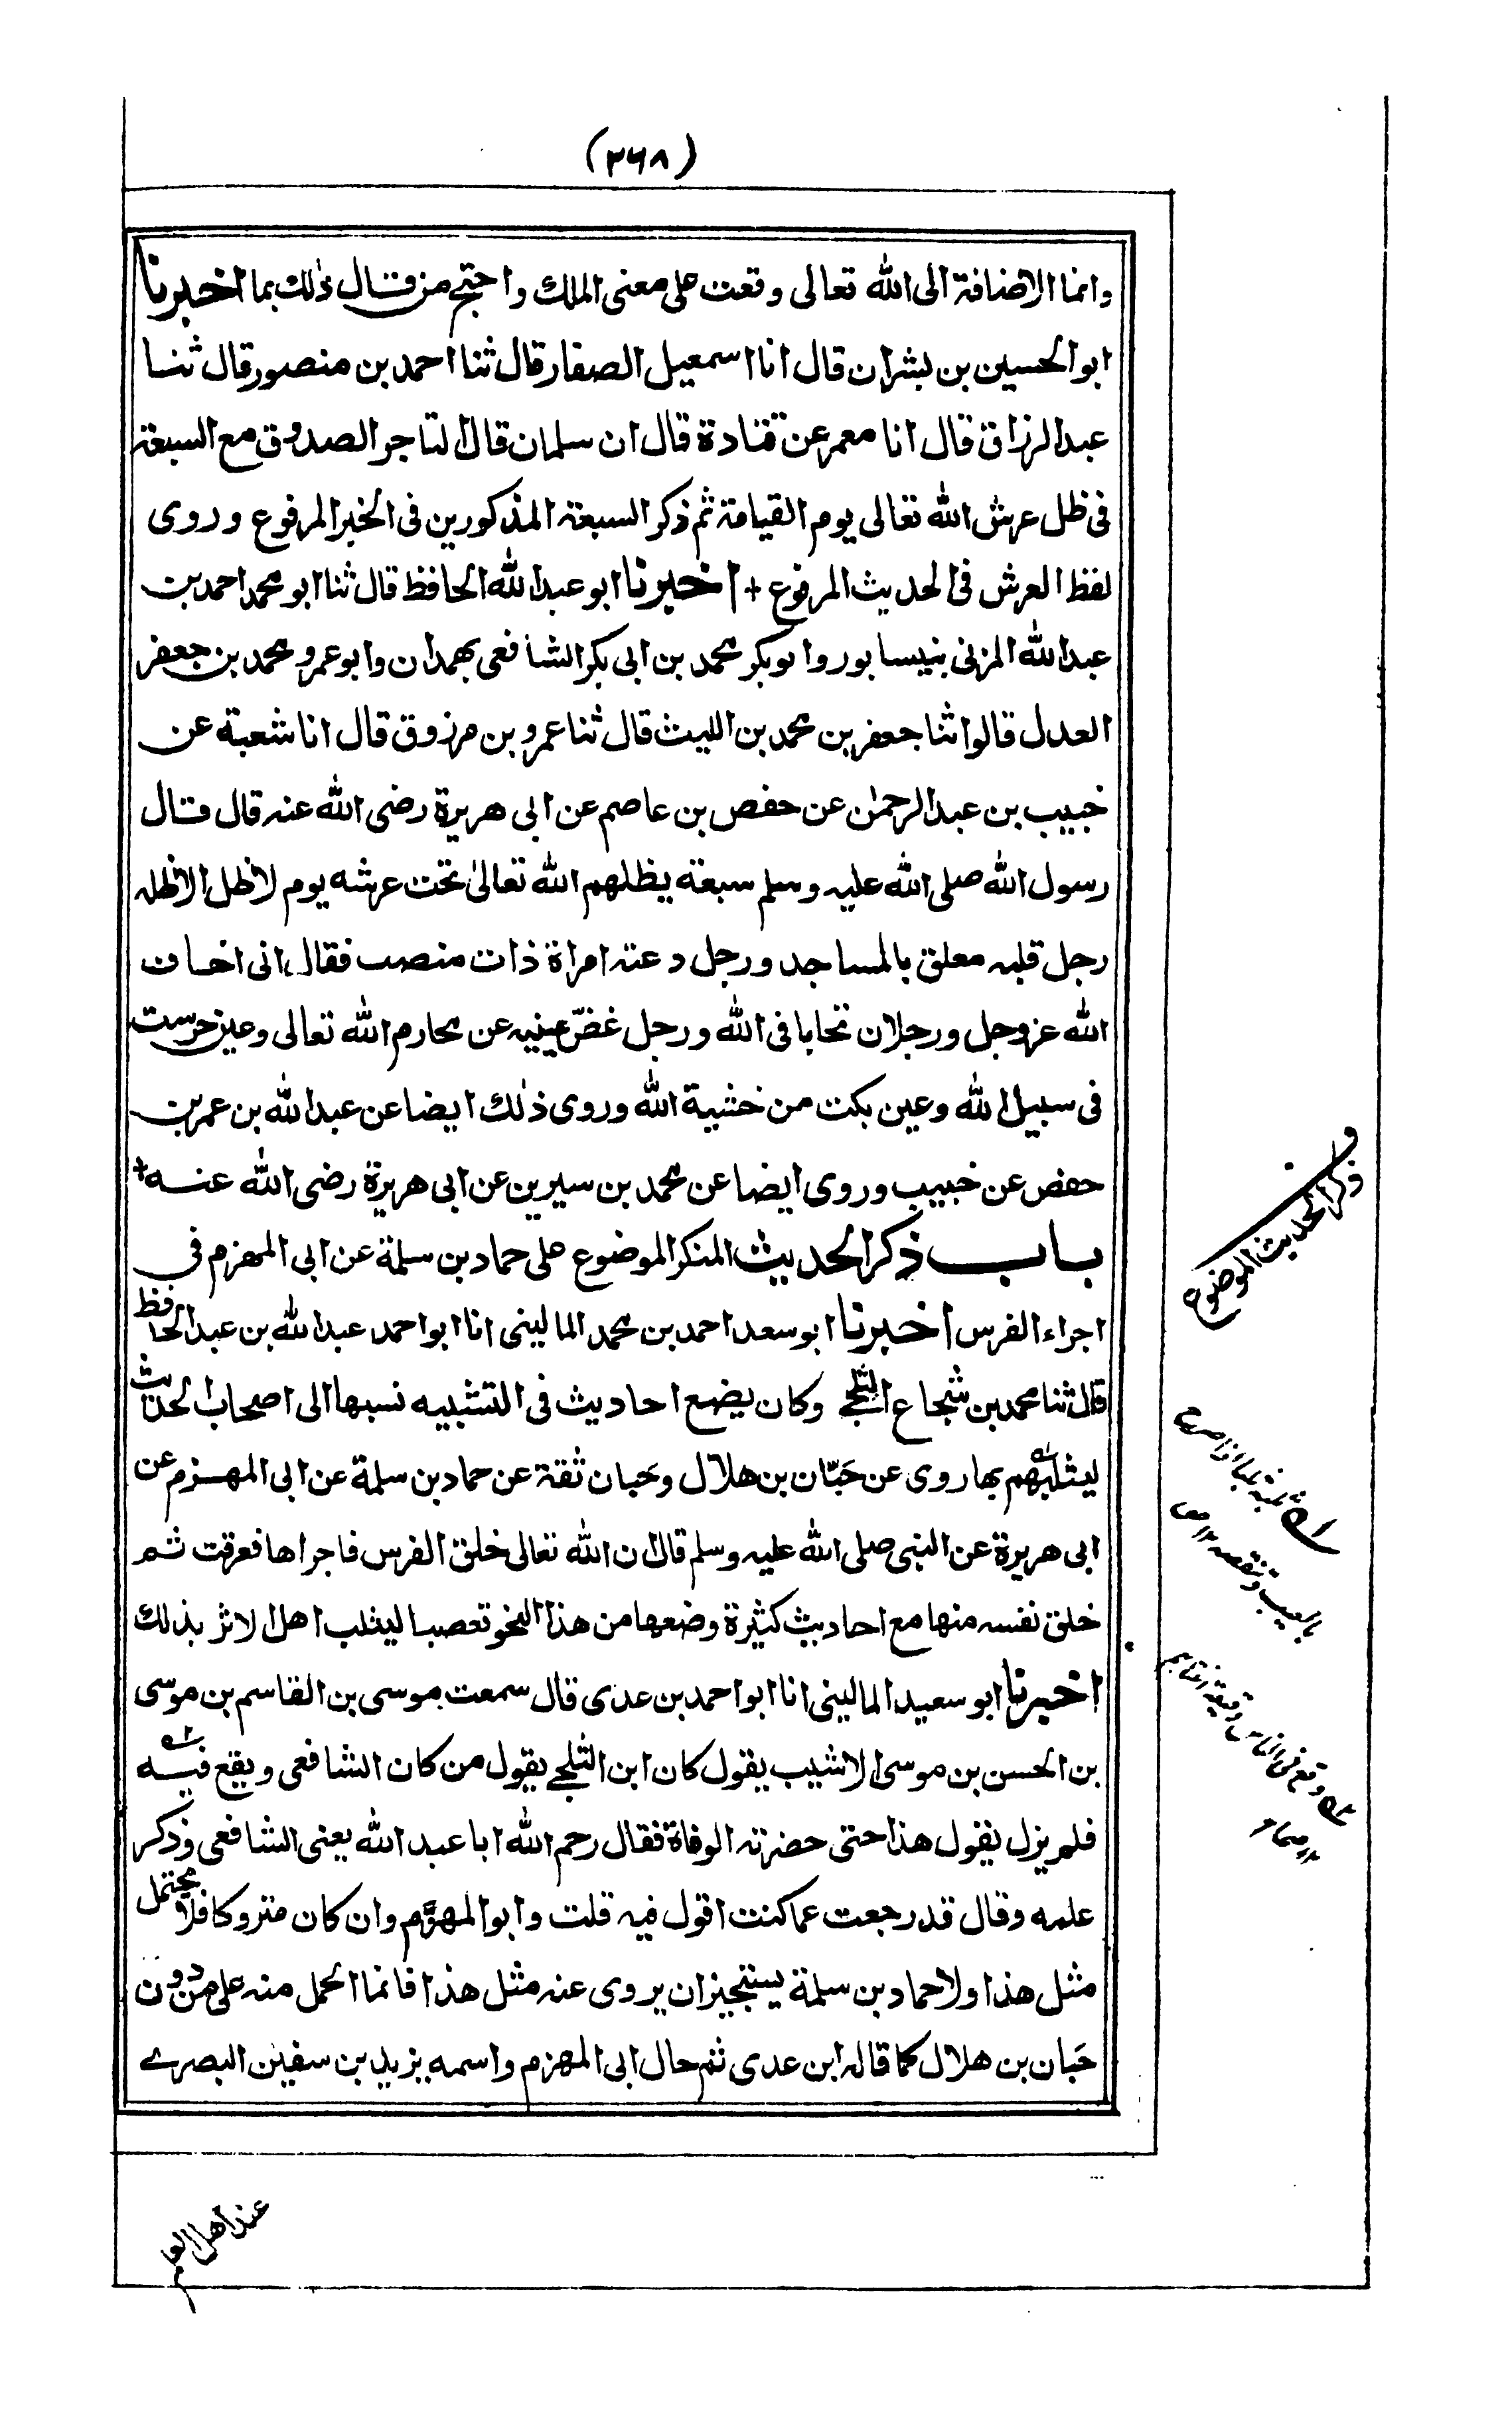 (٣٦٨)
وانما الاضافة الى الله تعالى وقعت على معنى الملك واحتج من قال ذلك بما اخبرنا
ابو الحسين بن بشران قال انا اسمعيل الصفار قال ثنا احمد بن منصور قال ثنا
عبد الرزاق قال انا معمر عن قتادة قال ان سلمان قال التاجر الصدوق مع السبعة
فى ظل عرش الله تعالى يوم القيامة ثم ذكر السبعة المذكورين فى الخبر المرفوع وروى
لفظ العرش فى الحديث المرفوع + اخبرنا ابو عبد الله الحافظ قال ثنا ابو محمد احمد بن
عبد الله المزنى بنيسابور وابوبكر محمد بن ابى بكر الشافعى بهمدان وابو عمرو محمد بن جعفر
العدل قالوا ثنا جعفر بن محمد بن الليث قال ثنا عمرو بن مرزوق قال انا شعبة عن
خبيب بن عبد الرحمٰن عن حفص بن عاصم عن ابى هريرة رضى الله عنه قال قال
رسول الله صلى الله عليه وسلم سبعة يظلهم الله تعالىٰ تحت عرشه يوم لا ظل الا ظله
رجل قلبه معلق بالمساجد ورجل دعته امراة ذات منصب فقال انى اخاف
الله عزوجل ورجلان تحابا فى الله ورجل غضّ عينيه عن محارم الله تعالى وعين حرست
فى سبيل الله وعين بكت من خشية الله وروى ذٰلك ايضا عن عبد الله بن عمر بن
حفص عن خبيب وروى ايضا عن محمد بن سيرين عن ابى هريرة رضى الله عنه +
باب ذكر الحديث المنكر الموضوع على حماد بن سلمة عن ابى المهزم فى
اجراء الفرس اخبرنا ابو سعد احمد بن محمد المالينى انا ابو احمد عبد الله بن عبد الحافظ
قال ثنا محمد بن شجاع الثلجى وكان يضع احاديث فى التشبيه نسبها الى اصحاب الحديث
ليثلبهم بها روى عن حَبّان بن هلال وحَبان ثقة عن حماد بن سلمة عن ابى المهزم عن
ابى هريرة عن النبى صلى الله عليه وسلم قال ان الله تعالى خلق الفرس فاجراها فعرقت ثم
خلق نفسه منها مع احاديث كثيرة وضعها من هذا النحو تعصبا ليثلب اهل الاثر بذلك
اخبرنا ابو سعيد المالينى انا ابو احمد بن عدى قال سمعت موسى بن القاسم بن موسى
بن الحسن بن موسى الاشيب يقول كان ابن الثلجى يقول من كان الشافعى ويقع فيه
فلم يزل يقول هذا حتى حضرته الوفاة فقال رحم الله ابا عبد الله يعنى الشافعى وذكر
علمه وقال قد رجعت عما كنت اقول فيه قلت وابو المهزَّم وان كان متروكا فلا يحتمل
مثل هذا ولا حماد بن سلمة يستجيز ان يروى عنه مثل هذا فانما الحمل منه على من دون
حَبان بن هلال كما قاله ابن عدى ثم حال ابى المهزم واسمه يزيد بن سفين البصرے
ذكر الحديث الموضوع
عند اهل العلم